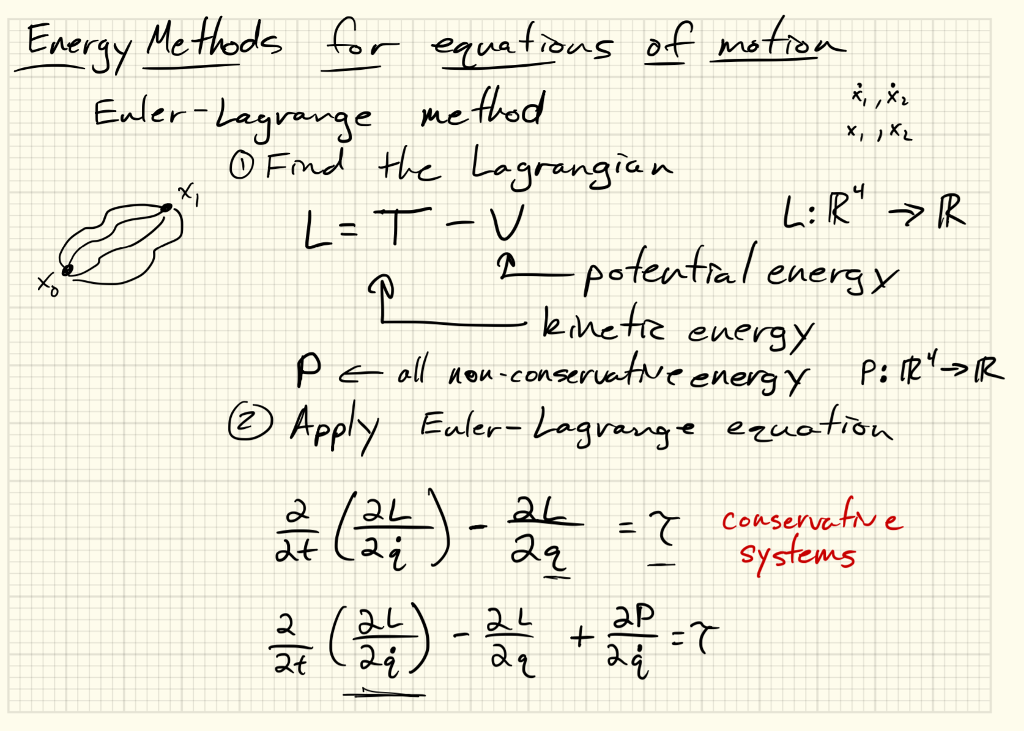 Energy Methods for equations of motion
Euler-Lagrange method
ẋ₁, ẋ₂
x₁, x₂
① Find the Lagrangian
x₁
x₀
L = T - V
L: ℝ⁴ → ℝ
potential energy
kinetic energy
P ← all non-conservative energy P: ℝ⁴ → ℝ
② Apply Euler-Lagrange equation
∂/∂t (∂L/∂q̇) - ∂L/∂q = τ conservative
systems
∂/∂t (∂L/∂q̇) - ∂L/∂q + ∂P/∂q̇ = τ